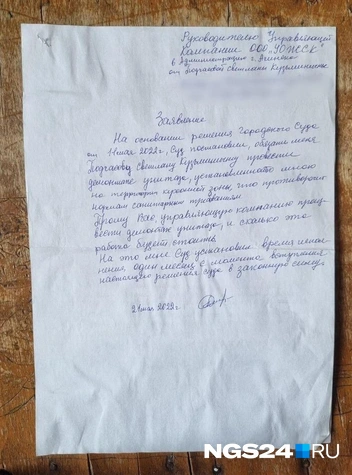 Руководителю Управляющей
Компании ООО "УЮЖССК"
в Администрацию г.
от Светланы Кузьминичны
Заявление.
На основании решения Городского Суда
от 11 мая 2022г, Суд постановил, обязать меня
Светлану Кузьминичну произвести
демонтаж унитаза, установленного мною
на территории кухонной зоны, что противоречит
нормам санитарным требованиям.
Прошу Вас, управляющую компанию произ-
вести демонтаж унитаза, и сколько эта
работа будет стоить.
На это мне Суд установил время испол-
нения один месяц с момента вступления
настоящего решения суда в законную силу.
21 мая 2022г.
NGS24.RU